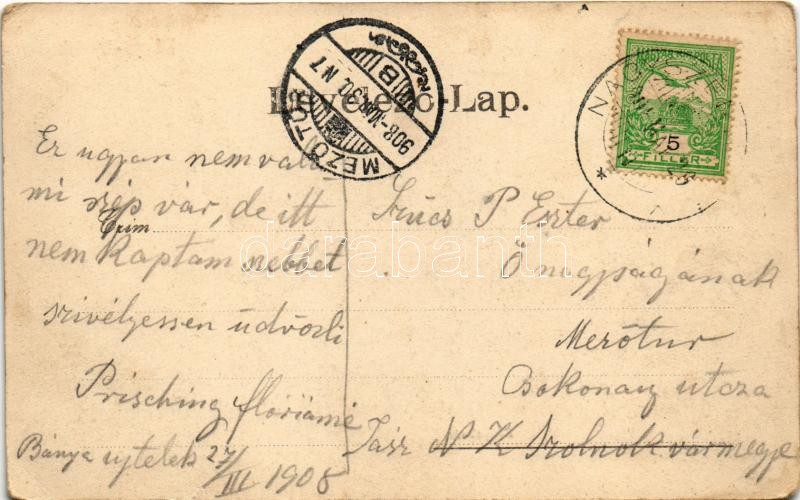 Levelező-Lap.
MEZŐTÚR
908
N7
B
NAGY
MAGYAR
5
FILLÉR
Ez ugyan nem valami
szép vár, de itt
Czim
nem kaptam nebbet
szivélyessen üdvözli
Prisching Flóriáné
Bánya ujtelek 27/III 1908
Szücs P Eszter
Ő nagyságának
Mezőtur
Bokonay utcza
Jász N K Szolnok vármegye
darabanth